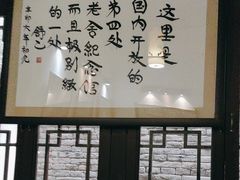 这里是
国内开放的
第四处
老舍纪念馆
而且最别致
的一处
舒乙